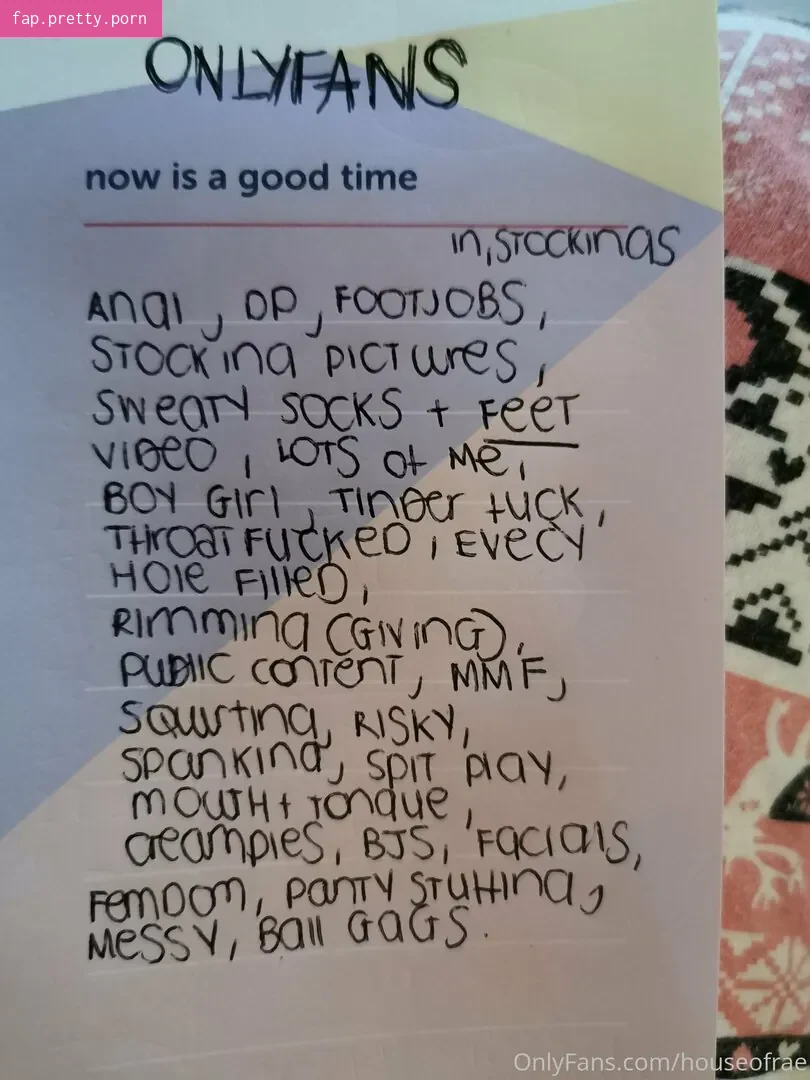 fap.pretty.porn
ONLYFANS
now is a good time
in, STOCKINGS
Anal, DP, FOOTJOBS,
STOCKING PICTURES,
SWEATY SOCKS + FEET
VIDEO, LOTS OF ME,
BOY GIRL, TINDER FUCK,
THROAT FUCKED, EVERY
HOLE FILLED,
RIMMING (GIVING),
PUBLIC CONTENT, MMF,
SQUIRTING, RISKY,
SPANKING, SPIT PLAY,
MOUTH + TONGUE,
CREAMPIES, BJS, FACIALS,
FEMDOM, PANTY STUFFING,
MESSY, BALL GAGS.
OnlyFans.com/houseofrae